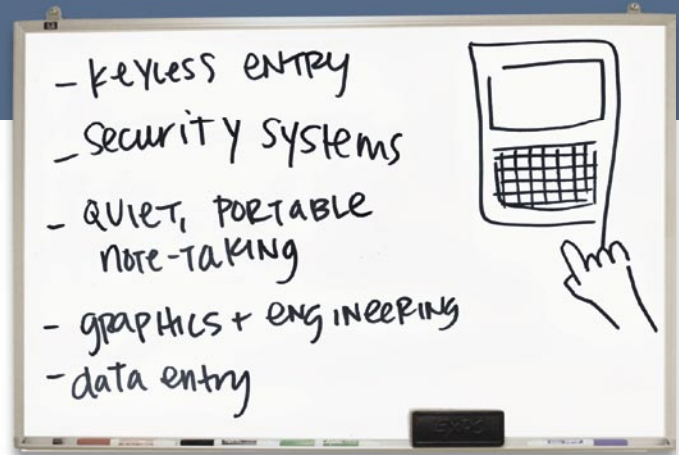 - keyless entry
- security systems
- QUIET, PORTABLE
note-taking
- graphics + engineering
- data entry
EXPO